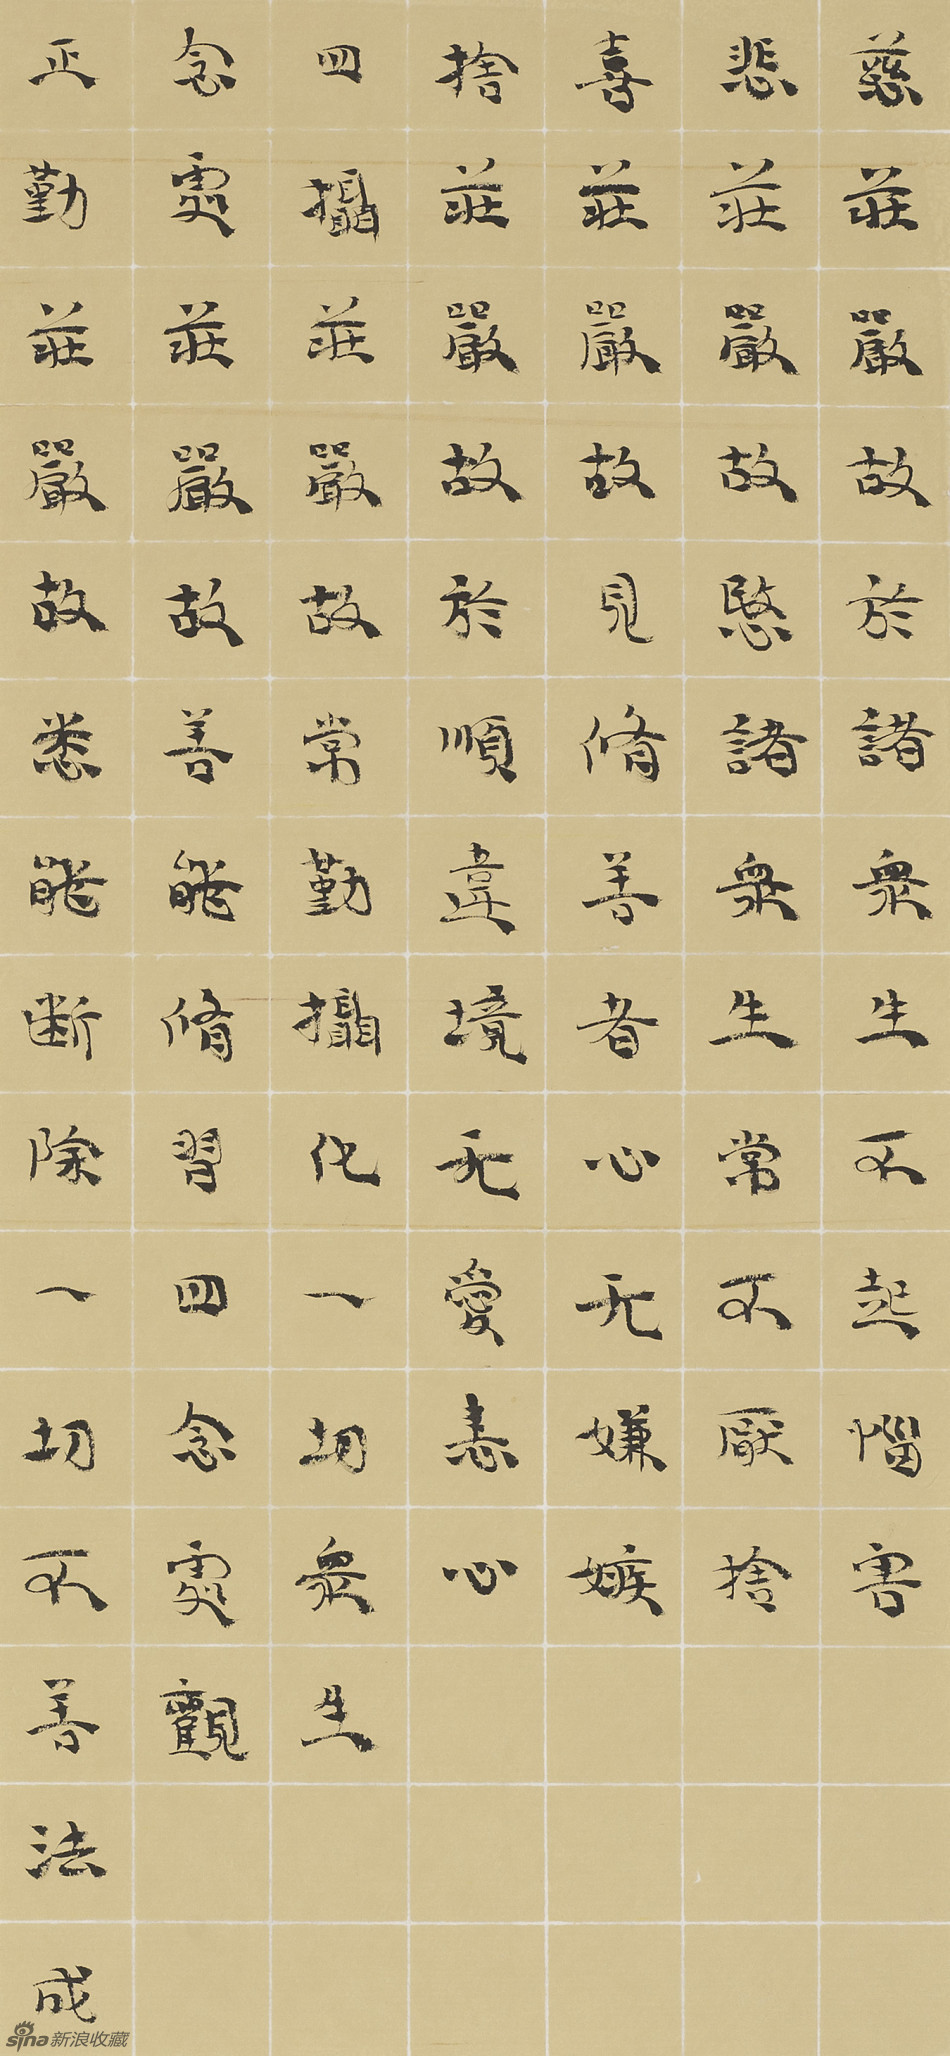 慈莊嚴故於諸衆生不起惱害
悲莊嚴故愍諸衆生常不厭捨
喜莊嚴故見脩善者心无嫌嫉
捨莊嚴故於順違境无愛恚心
四攝莊嚴故常勤攝化一切衆生
念處莊嚴故善能脩習四念處觀
正勤莊嚴故悉能断除一切不善法成
sina新浪收藏